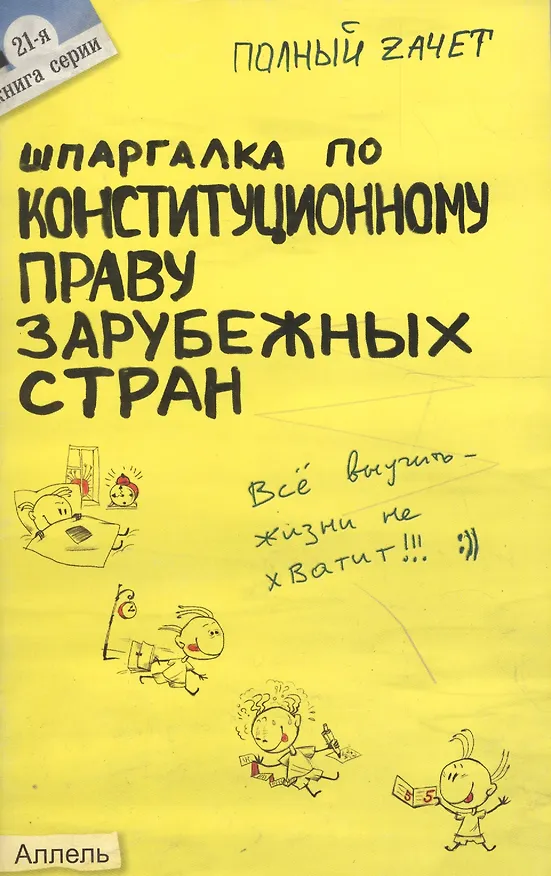 21-я
книга серии
ПОЛНЫЙ ZАЧЕТ
ШПАРГАЛКА ПО
КОНСТИТУЦИОННОМУ
ПРАВУ
ЗАРУБЕЖНЫХ
СТРАН
Всё выучить -
жизни не
хватит!!! :))
5 5
Аллель